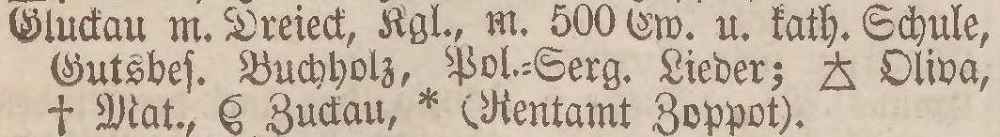 Gluckau m. Dreieck, Kgl., m. 500 Ew. u. kath. Schule,
Gutsbes. Buchholz, Pol.-Serg. Lieder; Oliva,
† Mat., Zuckau, * (Rentamt Zoppot).